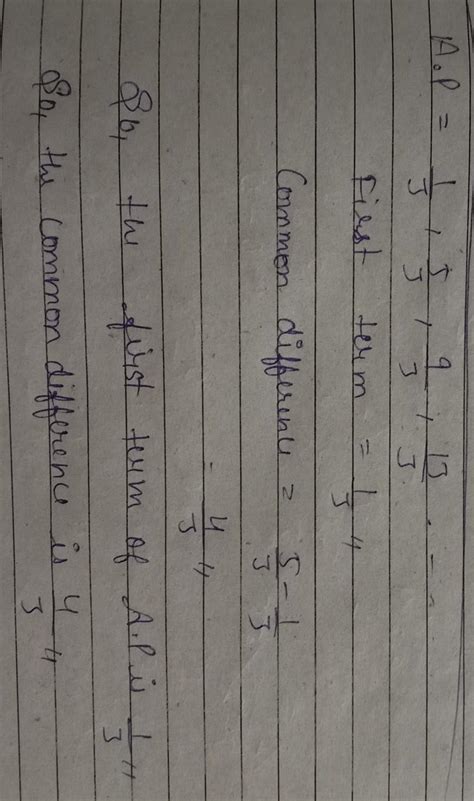 A.P = 1/3, 5/3, 9/3, 13/3 . - -
First term = 1/3 ,,
Common difference = 5/3 - 1/3
= 4/3 ,,
So, the first term of A.P is 1/3 ,,
So, the common difference is 4/3 ,,